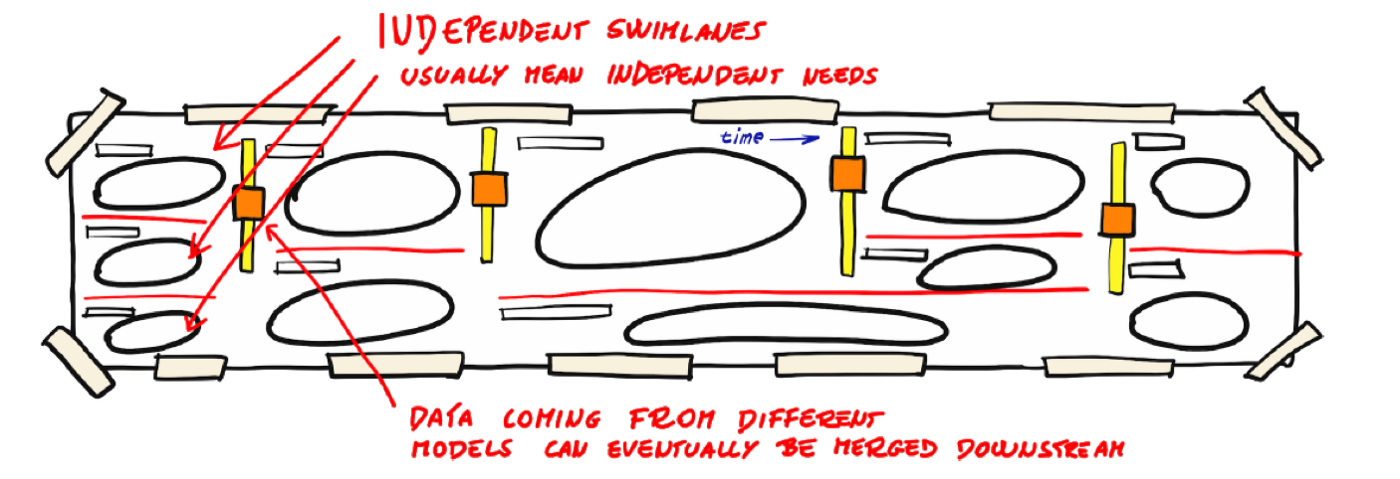 INDEPENDENT SWIMLANES
USUALLY MEAN INDEPENDENT NEEDS
time
DATA COMING FROM DIFFERENT
MODELS CAN EVENTUALLY BE MERGED DOWNSTREAM